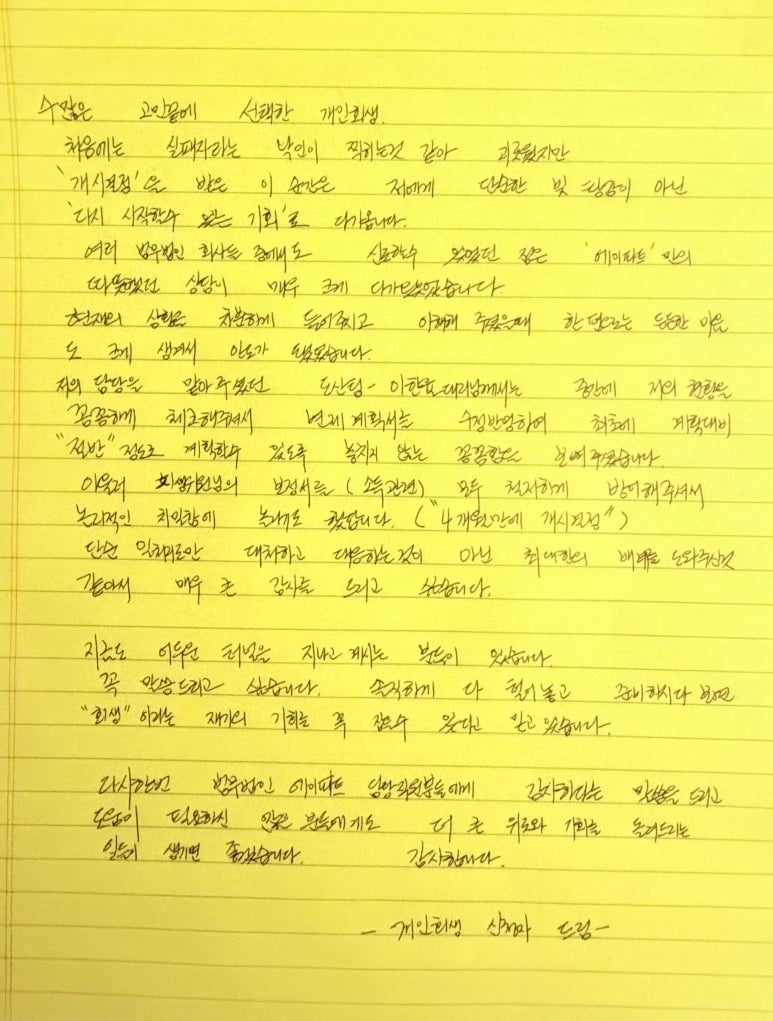 수많은 고민끝에 선택한 개인회생.
처음에는 실패자라는 낙인이 찍히는것 같아 괴로웠지만
'개시결정'을 받은 이 순간은 저에게 단순한 빚 탕감이 아닌
'다시 시작할수 있는 기회'로 다가옵니다.
여러 법무법인 회사들 중에서도 신뢰할수 있었던 점은 '에이파트'만의
따뜻했던 상담이 매우 크게 다가왔었습니다.
현재의 상황을 차분하게 들어주시고 이해해 주셨을때 한편으로는 든든한 마음
도 크게 생겨서 안도가 되었었습니다.
저의 담당을 맡아주셨던 도산팀- 대리님께서는 중간에 저의 현황을
꼼꼼하게 체크해주셔서 변제계획서를 수정반영하여 최초에 계획대비
"절반" 정도로 계획할수 있도록 놓치지 않는 꼼꼼함을 보여주셨습니다.
아울러 회생위원님의 보정서를 (소득관련) 모두 철저하게 방어해주셔서
논리적인 치밀함에 놀라기도 했답니다. ("4개월만에 개시결정")
단순 의뢰로만 대처하고 대응하는것이 아닌 최대한의 배려를 도와주신것
같아서 매우 큰 감사를 드리고 싶습니다.
지금도 어두운 터널을 지나고 계시는 분들이 있습니다.
꼭 말씀드리고 싶습니다. 솔직하게 다 털어놓고 준비하시다 보면
"회생"이라는 재기의 기회는 꼭 잡을수 있다고 믿고 있습니다.
다시한번 법무법인 에이파트 담당직원분들에게 감사하다는 말씀을 드리고
도움이 필요하신 많은 분들에게도 더 큰 위로와 기회를 돌려드리는
일들이 생기면 좋겠습니다. 감사합니다.
- 개인회생 신청자 드림-